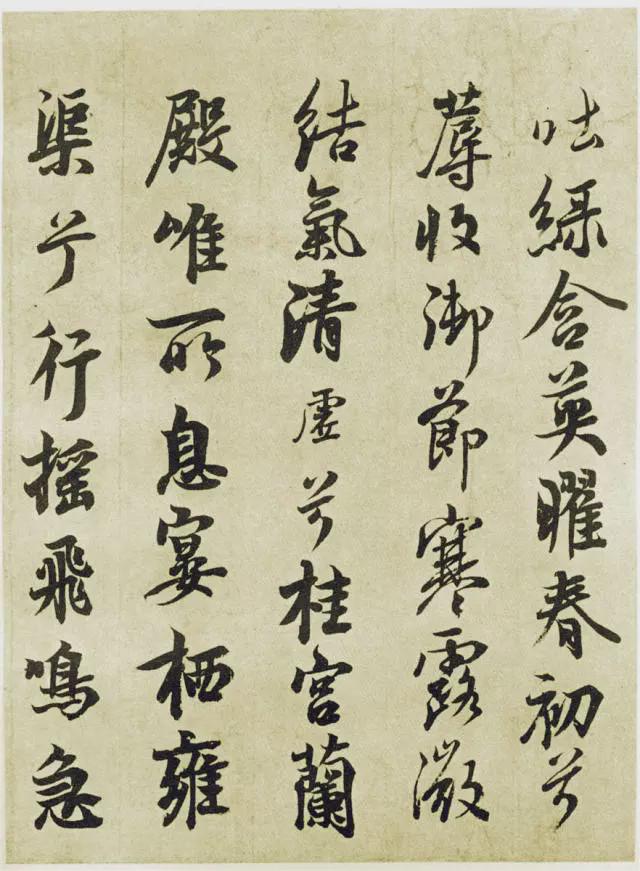 吐緑含英曜春初兮
蓐收御節寒露微
結氣清虚兮桂宮蘭
殿唯所息宴栖雍
渠兮行摇飛鳴急